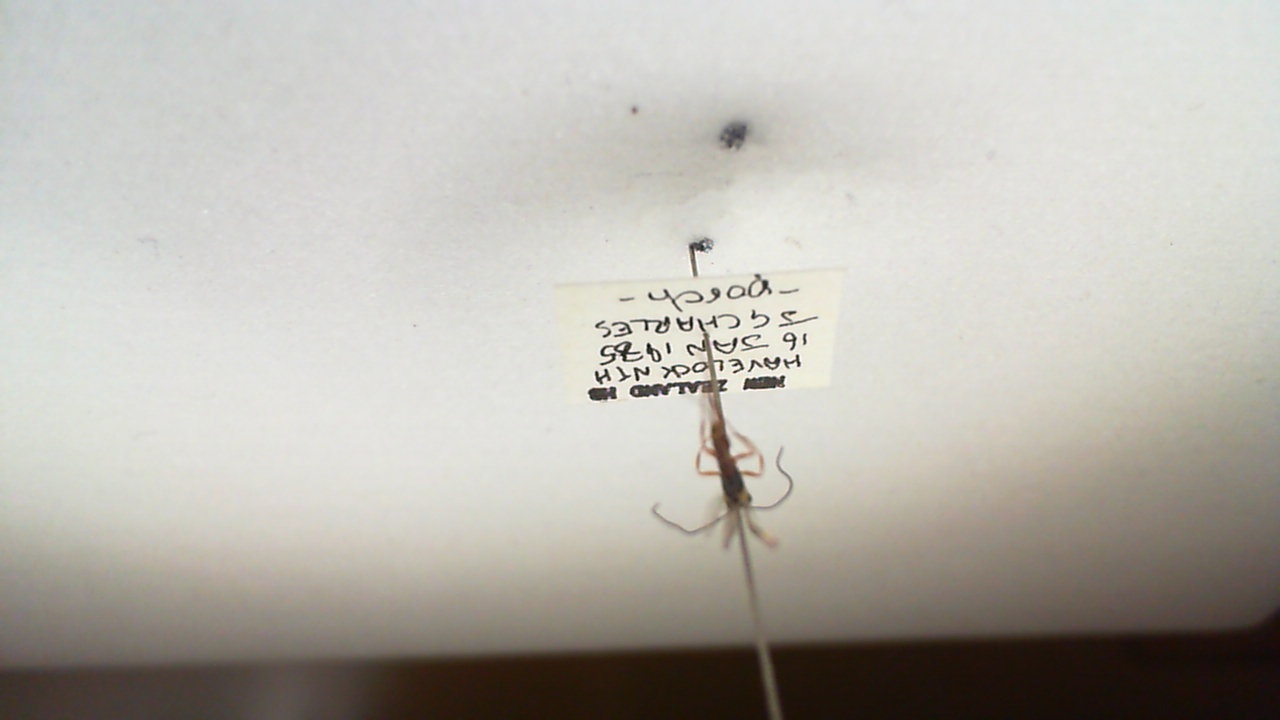 NEW ZEALAND HB
HAVELOCK NTH
16 JAN 1985
J G CHARLES
- porch -